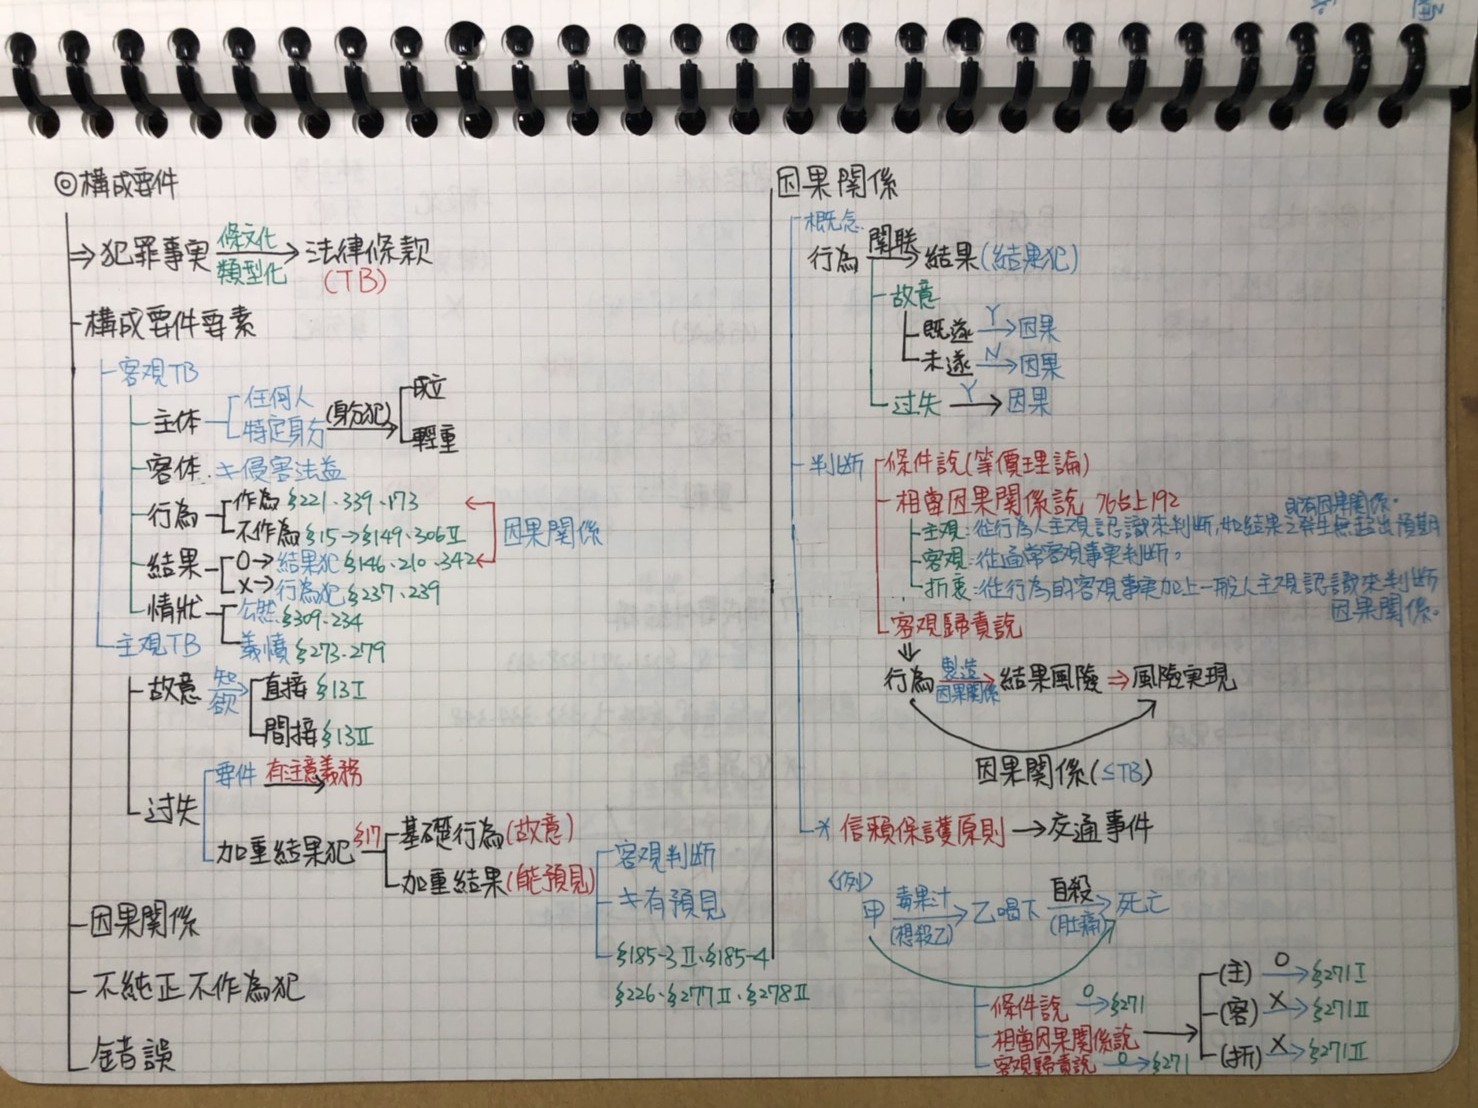 ◎構成要件
⇒犯罪事実 條文化 類型化 → 法律條款
(TB)
構成要件要素
客观TB
主体 任何人
特定身分 (身分犯) 成立
輕重
客体:キ侵害法益
行為 作為 §221、339、173
不作為 §15→§149、306Ⅱ
因果關係
結果 O→結果犯 §146、210、342
X→行為犯 §237、239
情狀 公然 §309、234
義憤 §273、279
主观TB
故意 知 欲 直接 §13Ⅰ
間接 §13Ⅱ
过失 要件 有注意義務
加重結果犯 §17 基礎行為(故意)
加重結果(能預見)
客观判断
キ有預見
§185-3Ⅱ、§185-4
§226、§277Ⅱ、§278Ⅱ
因果關係
不純正不作為犯
錯誤
因果關係
概念
行為 關聯→ 結果(結果犯)
故意
既遂 Y→因果
未遂 N→因果
过失 Y→因果
判断 條件說(等價理論)
相當因果關係說 76台上192
主观:從行為人主观認識來判断,如結果之發生無超出預期
即有因果關係。
客观:從通常客观事実判断。
折衷:從行為的客观事実加上一般人主观認識來判断
因果關係。
客观歸責說
⇓
行為 製造 因果關係 → 結果風險 ⇒ 風險実現
因果關係(≦TB)
* 信賴保護原則 → 交通事件
<例>
甲 毒果汁 (想殺乙) → 乙喝下 自殺 (肚痛) → 死亡
條件說 O→§271
相當因果關係說 → (主) O→§271Ⅰ
(客) X→§271Ⅱ
(折) X→§271Ⅱ
客观歸責說 O→§271